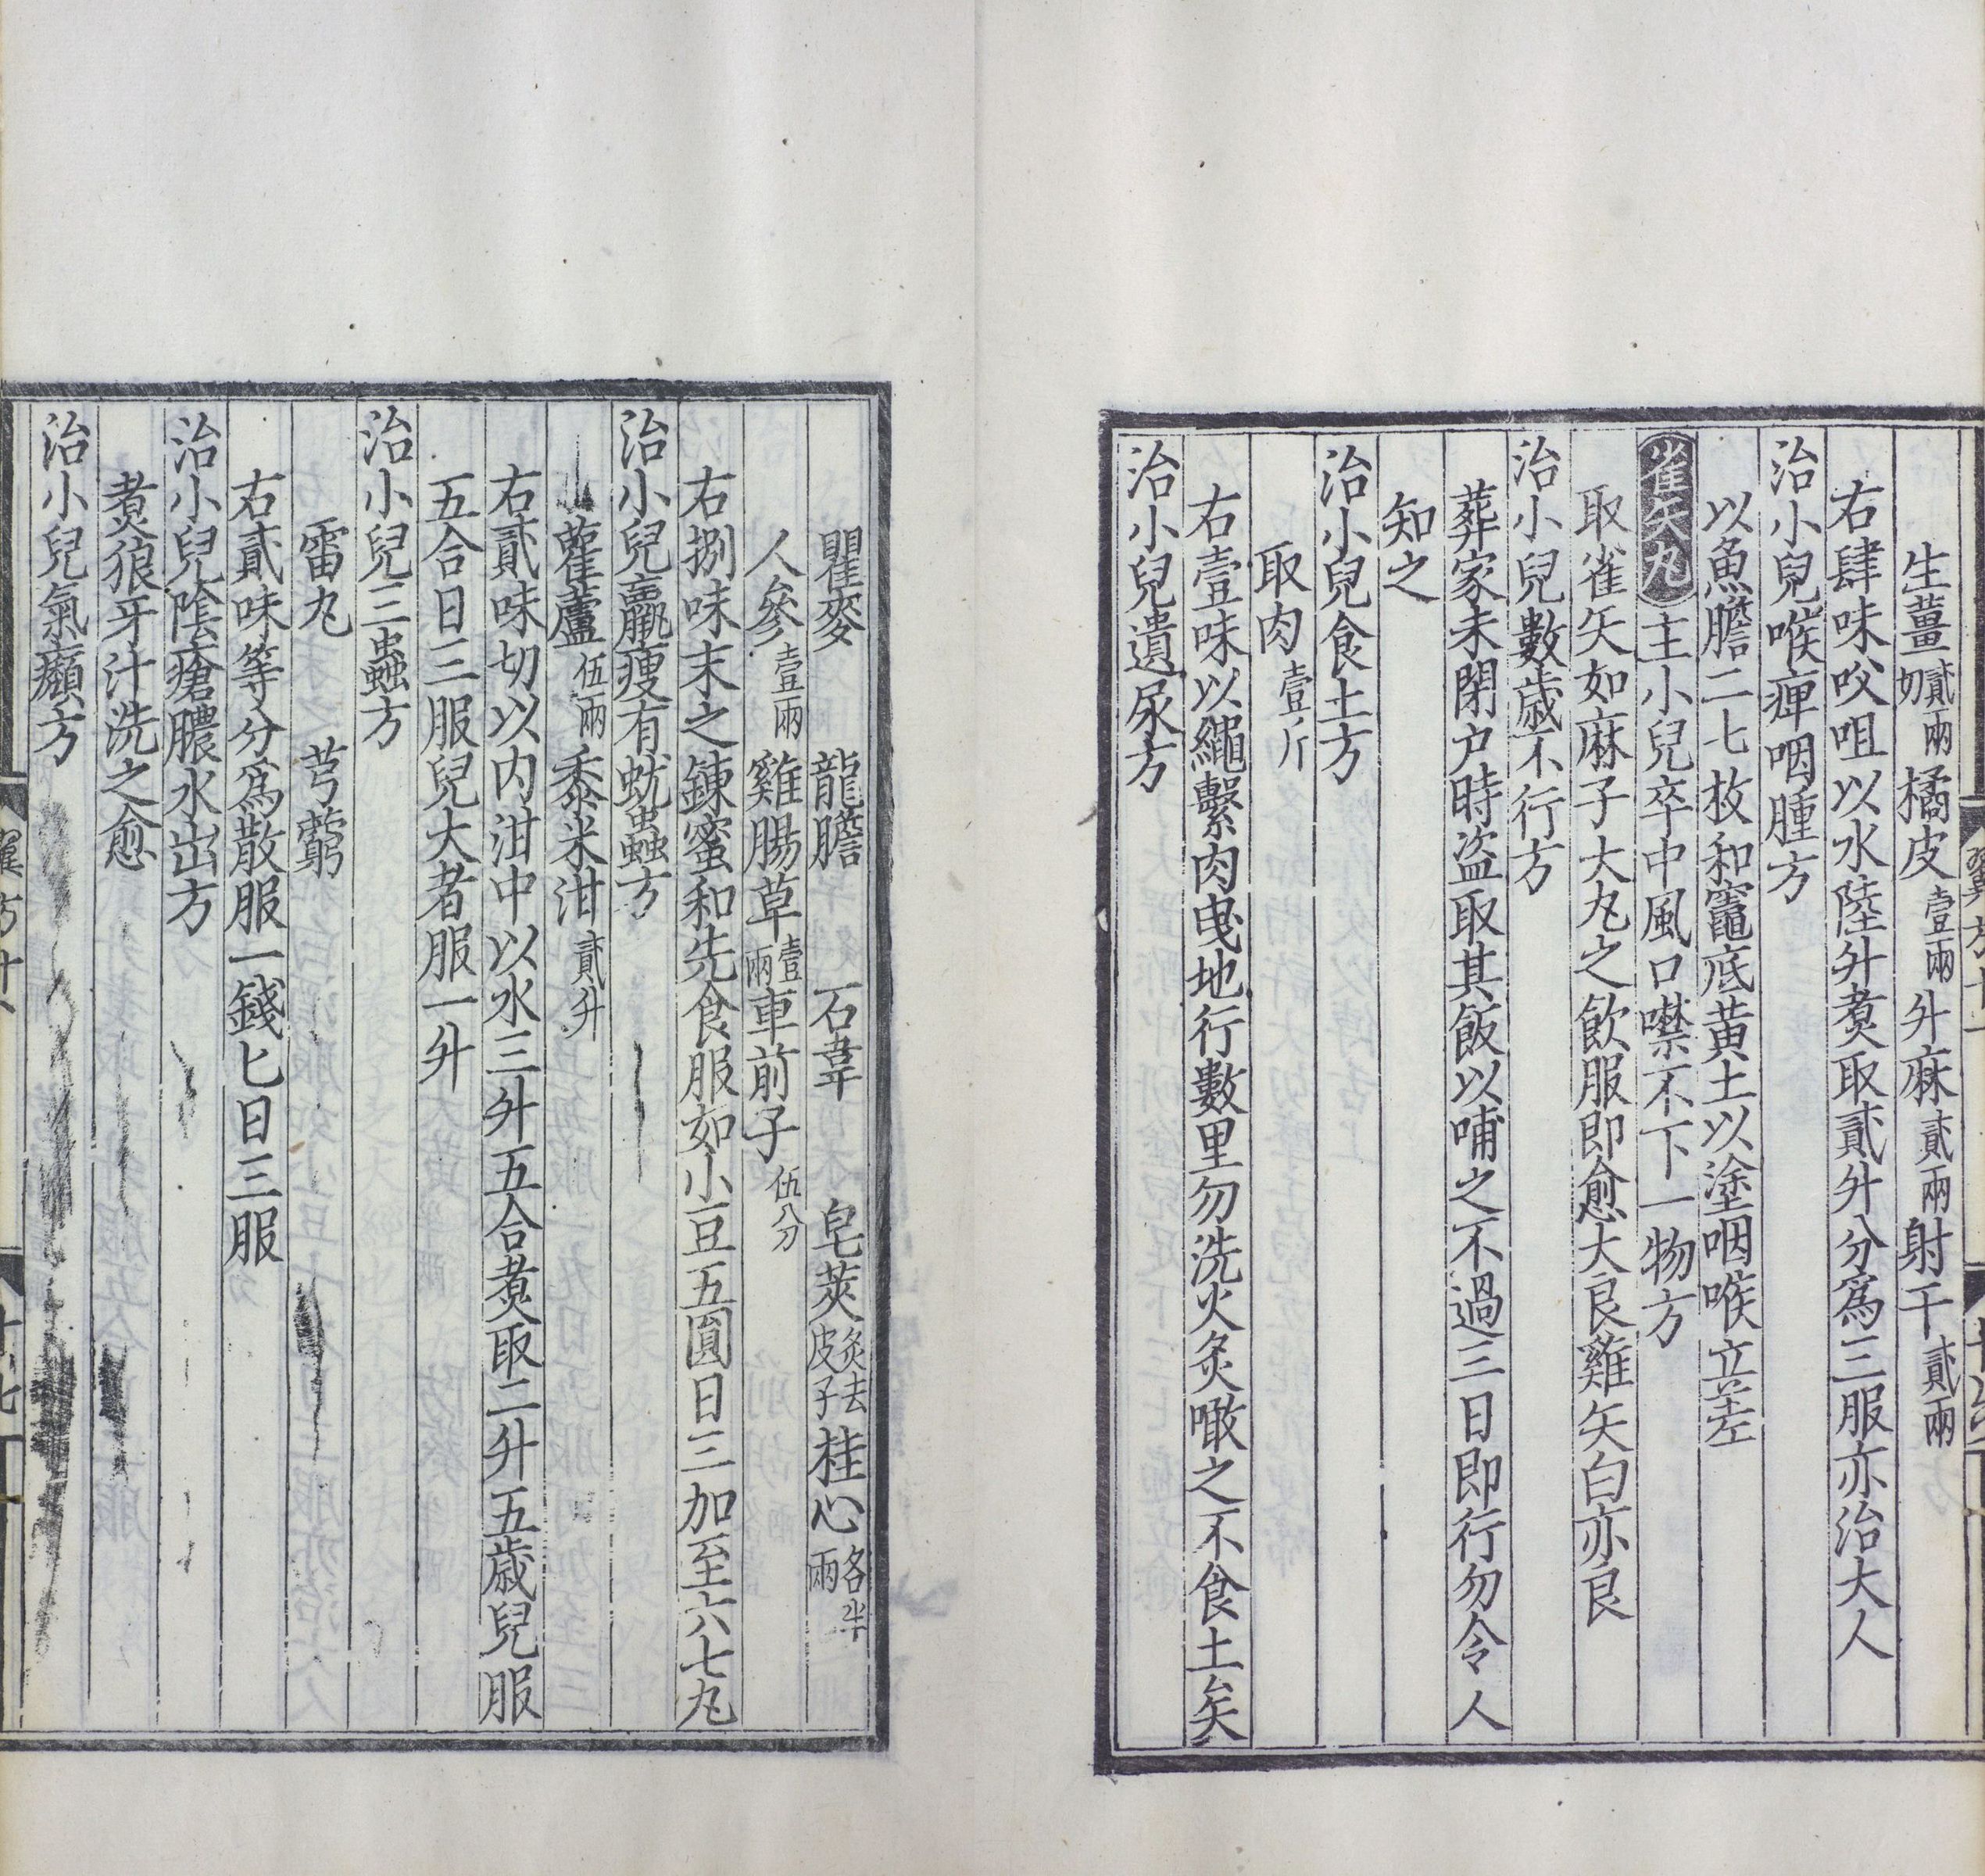 生薑切貳兩橘皮壹兩升麻貳兩射干貳兩
右肆味㕮咀以水陸升煑取貳升分爲三服亦治大人
治小兒喉痺咽腫方
以魚膽二七枚和竈底黄土以塗咽喉立差
雀矢丸主小兒卒中風口噤不下一物方
取雀矢如麻子大丸之飲服即愈大良雞矢白亦良
治小兒數歳不行方
葬家未閉户時盜取其飯以哺之不過三日即行勿令人
知之
治小兒食土方
取肉壹斤
右壹味以繩繫肉曳地行數里勿洗火炙噉之不食土矣
治小兒遺尿方
瞿麥 龍膽 石韋 皂莢炙去皮子桂心各半兩
人參壹兩雞腸草壹兩車前子伍分
右捌味末之錬蜜和先食服如小豆五圓日三加至六七丸
治小兒羸瘦有蚘蟲方
雚蘆伍兩黍米泔貳升
右貳味切以内泔中以水三升五合煑取二升五歳兒服
五合日三服兒大者服一升
治小兒三蟲方
雷丸 芎藭
右貳味等分爲散服一錢匕日三服
治小兒陰瘡膿水出方
煑狼牙汁洗之愈
治小兒氣㿗方